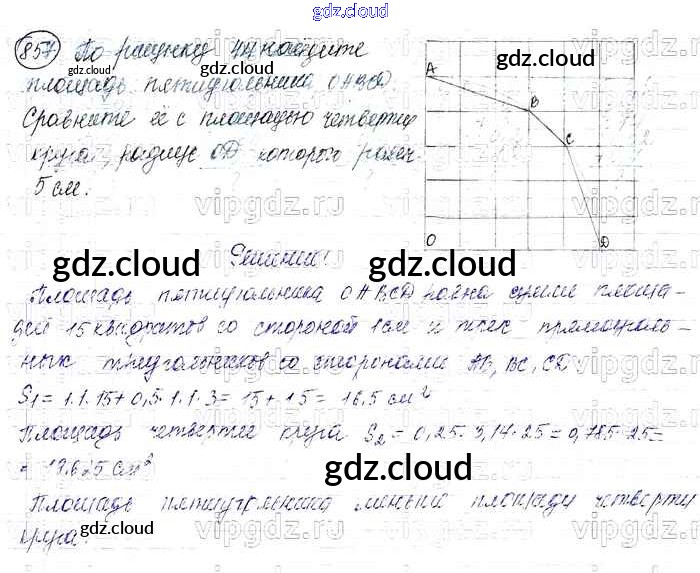 gdz.cloud
857 По рисунку 44 найдите
площадь пятиугольника OABCD.
Сравните её с площадью четверти
круга, радиус OD которого равен
5 см.
A
B
C
O
D
Решение:
Площадь пятиугольника OABCD равна сумме площа-
дей 15 квадратов со стороной 1см и трех прямоуголь-
ных треугольников со сторонами AB, BC, CD
S₁ = 1·1·15 + 0,5·1·1·3 = 15 + 1,5 = 16,5 см²
Площадь четверти круга S₂ = 0,25·3,14·25 = 0,785·25 =
= 19,625 см²
Площадь пятиугольника меньше площади четверти
круга.
gdz.cloud
gdz.cloud
gdz.cloud
gdz.cloud
gdz.cloud
gdz.cloud
gdz.cloud
gdz.cloud
vipgdz.ru
vipgdz.ru
vipgdz.ru